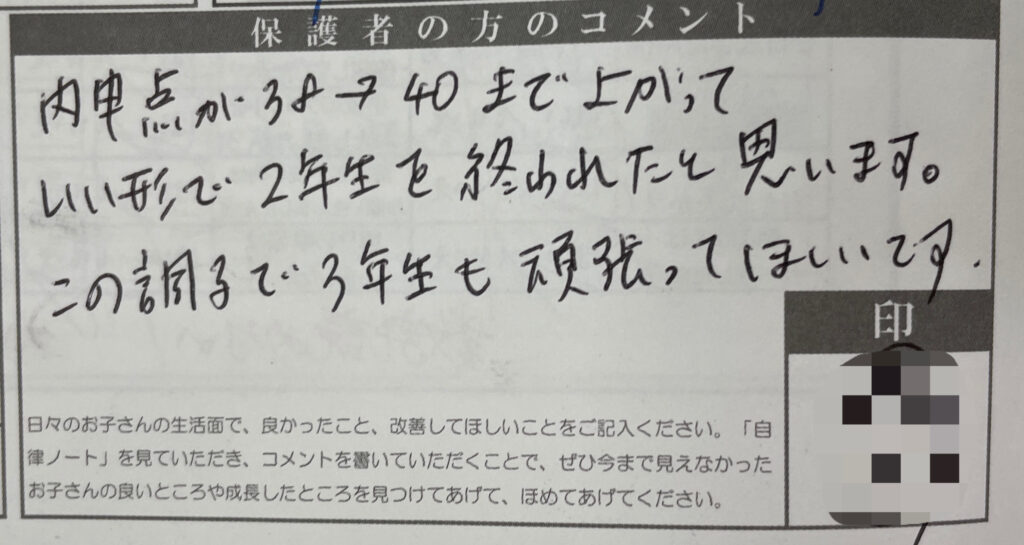 保護者の方のコメント
内申点が38→40まで上がって
いい形で2年生を終われたと思います。
この調子で3年生も頑張ってほしいです.
印
日々のお子さんの生活面で、良かったこと、改善してほしいことをご記入ください。「自
律ノート」を見ていただき、コメントを書いていただくことで、ぜひ今まで見えなかった
お子さんの良いところや成長したところを見つけてあげて、ほめてあげてください。